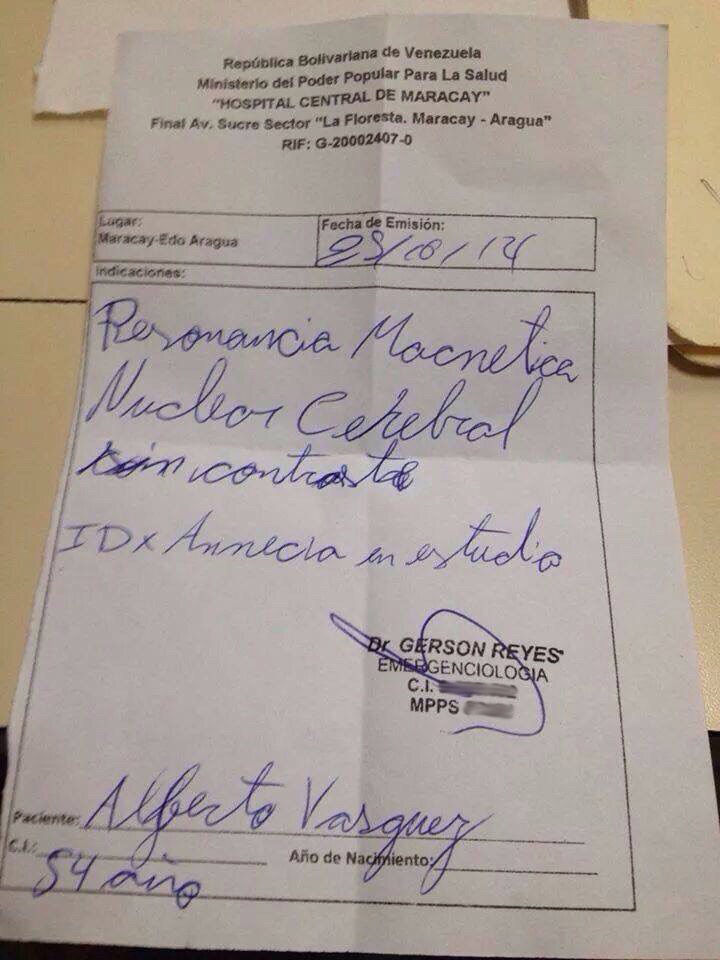 República Bolivariana de Venezuela
Ministerio del Poder Popular Para La Salud
"HOSPITAL CENTRAL DE MARACAY"
Final Av. Sucre Sector "La Floresta. Maracay - Aragua"
RIF: G-20002407-0
Lugar:
Maracay-Edo Aragua
Fecha de Emisión:
Indicaciones:
Resonancia Macnetica
Nucleor Cerebral
contraste
IDx Amnecia en estudio
Dr GERSON REYES
EMERGENCIOLOGIA
C.I.
MPPS
Paciente: Alberto Vasquez
C.I.:
Año de Nacimiento:
54 año